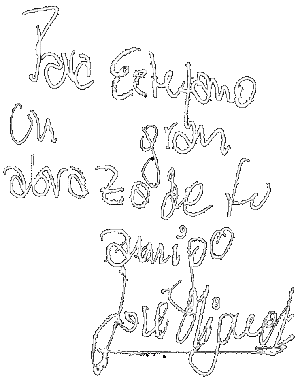 Para Estefano
un gran
abrazo de tu
amigo
José Miguel